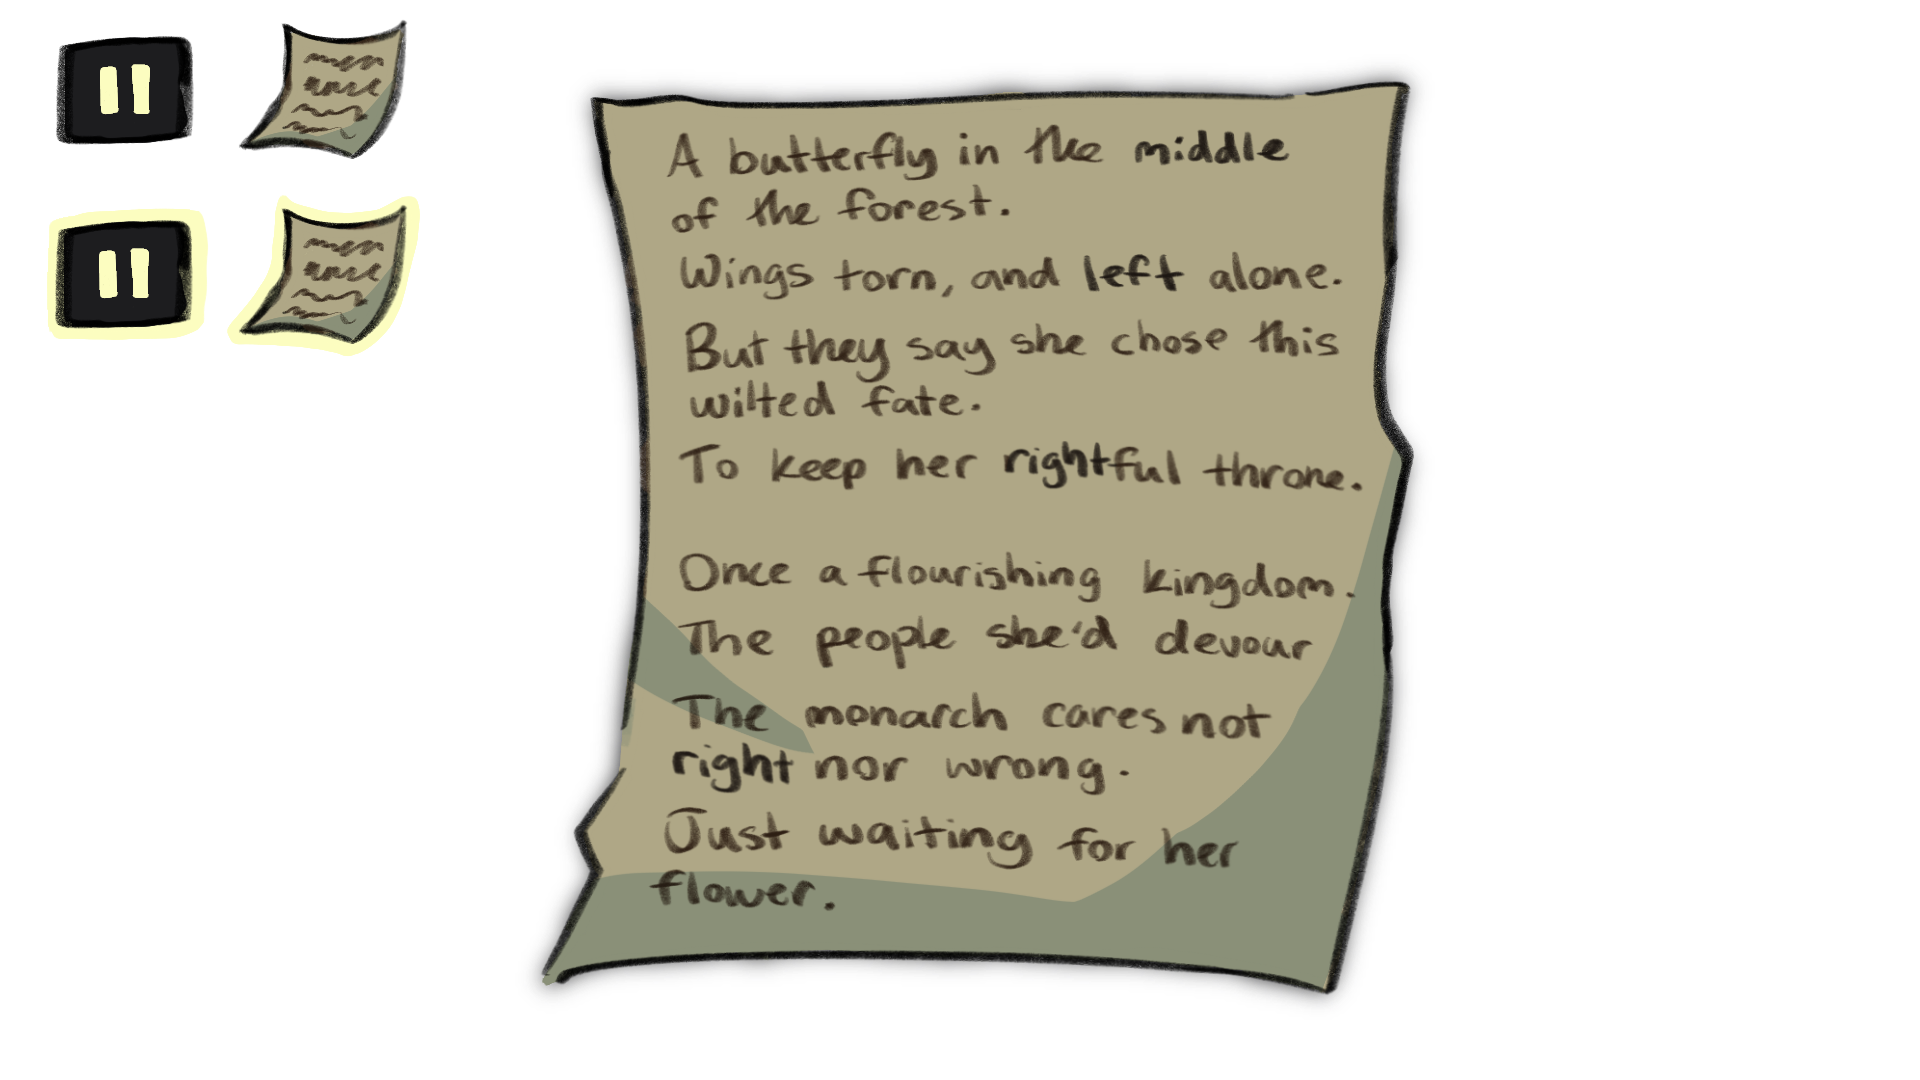 A butterfly in the middle
of the forest.
Wings torn, and left alone.
But they say she chose this
wilted fate.
To keep her rightful throne.
Once a flourishing kingdom.
The people she'd devour
The monarch cares not
right nor wrong.
Just waiting for her
flower.